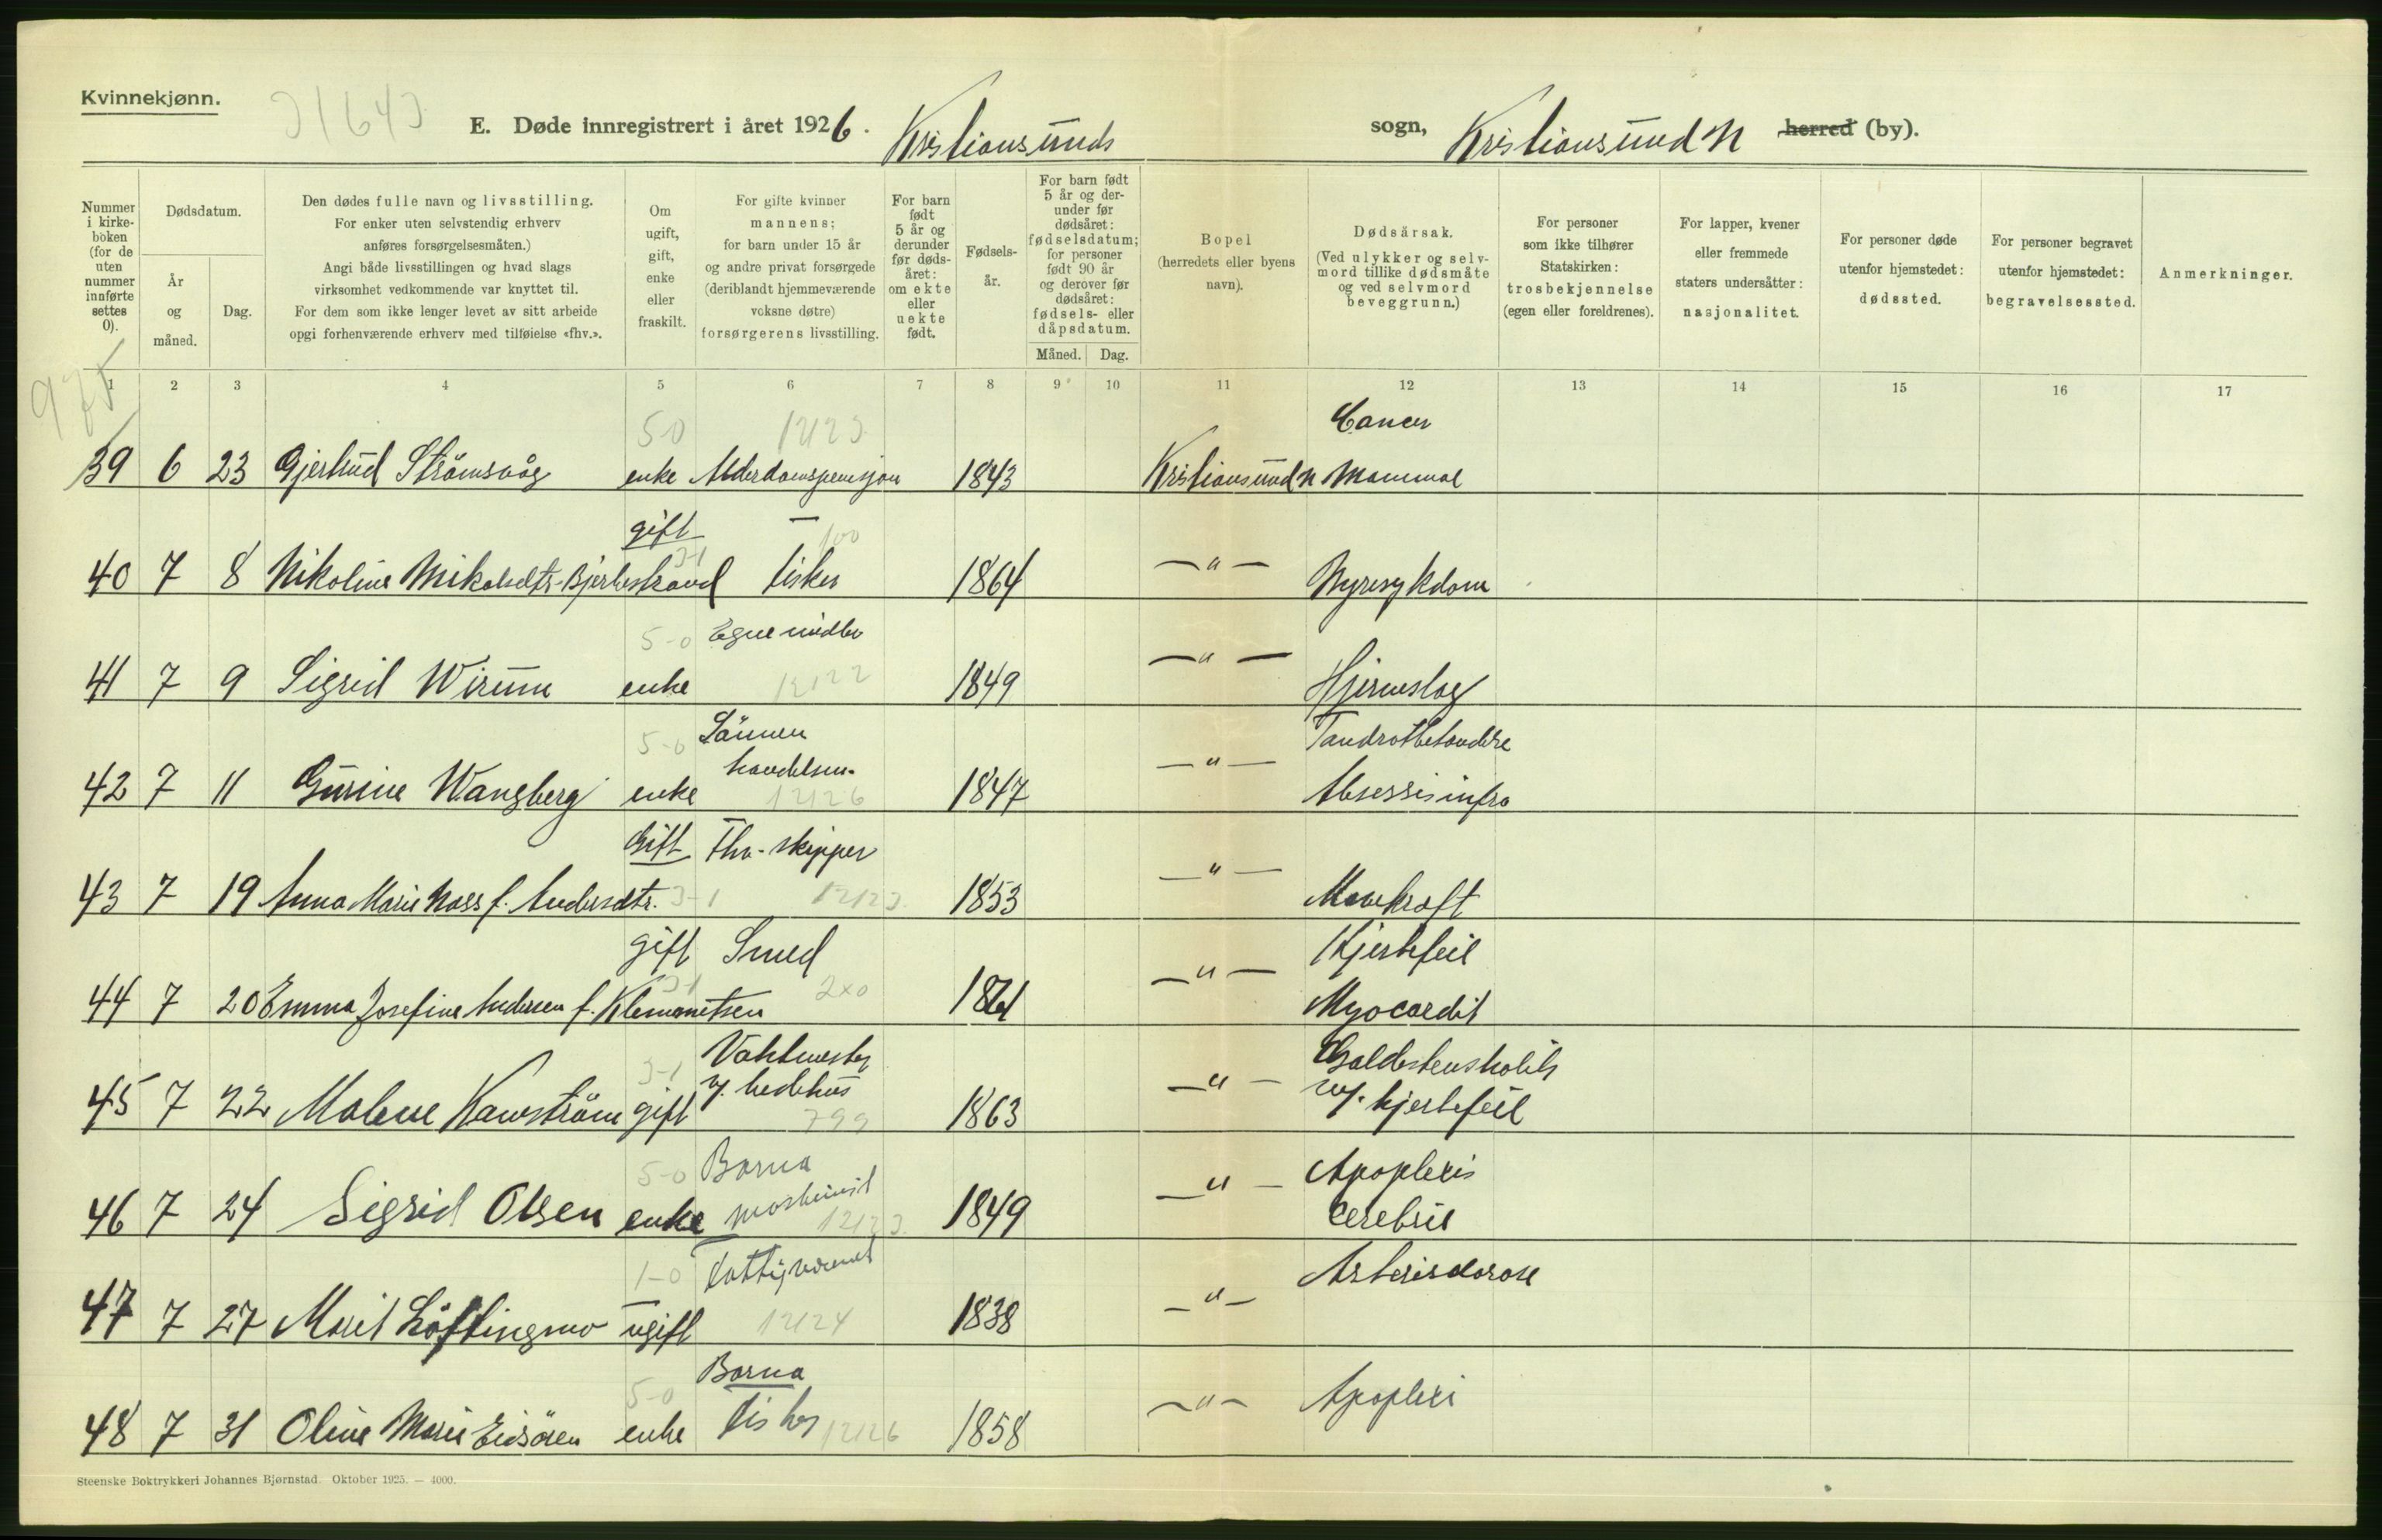 Kvinnekjønn.
31643
E. Døde innregistrert i året 1926. Kristiansunds sogn, Kristiansund N herred (by).
Nummer i kirke-boken (for de uten nummer innførte settes 0).
Dødsdatum.
År og måned.
Dag.
Den dødes fulle navn og livsstilling.
For enker uten selvstendig erhverv
anføres forsørgelsesmåten.)
Angi både livsstillingen og hvad slags
virksomhet vedkommende var knyttet til.
For dem som ikke lenger levet av sitt arbeide
opgi forhenværende erhverv med tilføielse «fhv.».
Om ugift, gift, enke eller fraskilt.
For gifte kvinner
mannens;
for barn under 15 år
og andre privat forsørgede
(deriblandt hjemmeværende
voksne døtre)
forsørgerens livsstilling.
For barn født 5 år og derunder før døds-året: om ekte eller uekte født.
Fødsels-år.
For barn født 5 år og der-under før dødsåret: fødselsdatum; for personer født 90 år og derover før dødsåret: fødsels- eller dåpsdatum.
Måned. Dag.
Bopel
(herredets eller byens
navn).
Dødsårsak.
(Ved ulykker og selv-
mord tillike dødsmåte
og ved selvmord
beveggrunn.)
For personer
som ikke tilhører
Statskirken:
trosbekjennelse
(egen eller foreldrenes).
For lapper, kvener
eller fremmede
staters undersåtter:
nasjonalitet.
For personer døde
utenfor hjemstedet:
dødssted.
For personer begravet
utenfor hjemstedet:
begravelsessted.
Anmerkninger.
1 2 3 4 5 6 7 8 9 10 11 12 13 14 15 16 17
50 12123 Cancer
39 6 23 Gjertrud Strömsvåg enke Alderdomspensjon 1843 Kristiansund N Mammae
gift 100
40 7 8 Nikoline Mikalsdtr. Bjerkestrand 3-1 fisker 1864 —"— Nyresykdom
5-0 Egne midler
41 7 9 Sigrid Wirum enke 12122 1849 —"— Hjerneslag
5-0 Sönnen
handelsm.
42 7 11 Gurine Wangberg enke 12126 1847 —"— Absessis infra
Gift Fhv. skipper
43 7 19 Anna Marie Nass f. Andersdtr. 3-1 12123 1853 —"— Mavekræft
gift Smed Hjertefeil
44 7 20 Emma Josefine Andersen f. Klemmetsen 3-1 2x0 1861 —"— Myocardit
3-1 Vaktmester Galdestenskolik
45 7 22 Malene Kawström gift v/ bedehus 799 1863 —"— m/. hjertefeil
5-0 Barna Apoplexis
46 7 24 Sigrid Olsen enke maskinist 12123 1849 —"— Cerebrie
1-0 Fattigvesenet Arteriosclorose
47 7 27 Marit Löftingsmo ugift 12124 1838 —"—
5-0 Barna
48 7 31 Oline Marie Eidsören enke fisker 12126 1858 —"— Apoplexi
Steenske Boktrykkeri Johannes Bjørnstad. Oktober 1925. — 4000.